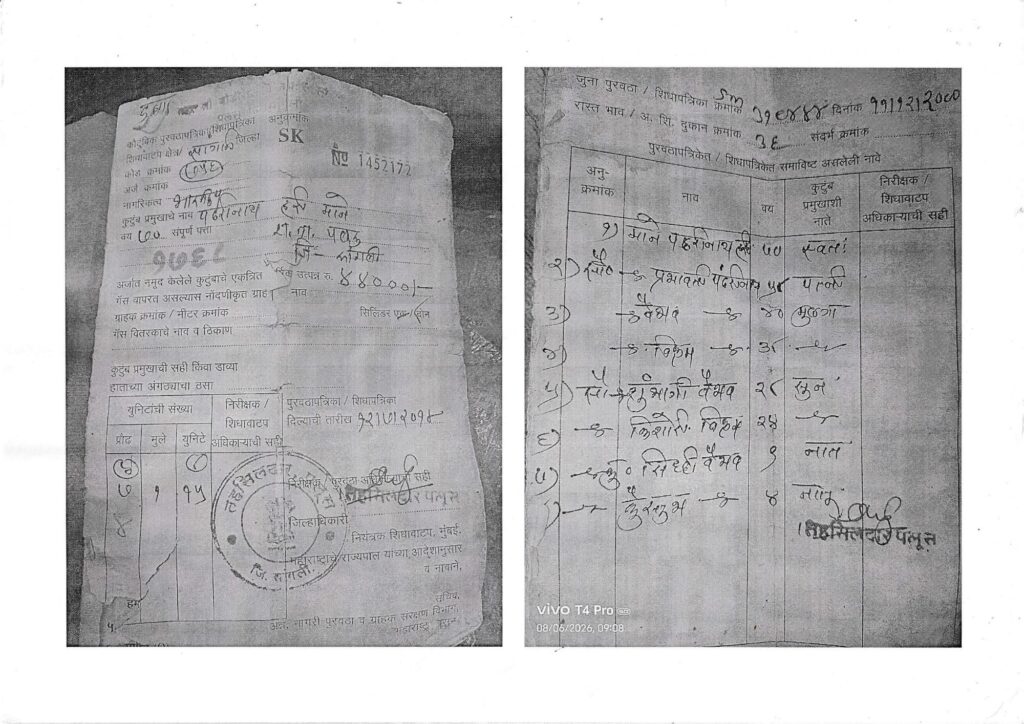 दुबार
कौटुंबिक पुरवठापत्रिका/शिधापत्रिका अनुक्रमांक
शिधावाटप क्षेत्र/ सांगली जिल्हा SK
कोड क्रमांक Nº 1452172
अर्ज क्रमांक
नागरिकत्व भारतीय
कुटुंब प्रमुखाचे नाव पंढरीनाथ हरी माने
वय ७० संपूर्ण पत्ता रा. पलूस
जि- सांगली
१७६८
अर्जात नमूद केलेले कुटुंबाचे एकत्रित उत्पन्न रु. ४४०००/-
गॅस वापरत असल्यास नोंदणीकृत ग्राहक नाव
ग्राहक क्रमांक / मीटर क्रमांक सिलिंडर एक/दोन
गॅस वितरकाचे नाव व ठिकाण
कुटुंब प्रमुखाची सही किंवा डाव्या
हाताच्या अंगठ्याचा ठसा
युनिटांची संख्या निरीक्षक / शिधावाटप अधिकाऱ्याची सही पुरवठापत्रिका / शिधापत्रिका
दिल्याची तारीख
प्रौढ मुले युनिटे
७ १ १५
८
निरीक्षक / पुरवठा अधिकाऱ्याची सही
तहसिलदार पलूस
जिल्हाधिकारी
नियंत्रक शिधावाटप, मुंबई,
महाराष्ट्राचे राज्यपाल यांच्या आदेशानुसार
व नावाने,
तहसिलदार, पलूस
जि. सांगली.
सचिव,
अन्न, नागरी पुरवठा व ग्राहक संरक्षण विभाग,
महाराष्ट्र शासन.
जुना पुरवठा / शिधापत्रिका क्रमांक दिनांक
रास्त भाव / अ. शि. दुकान क्रमांक ३६ संदर्भ क्रमांक
पुरवठापत्रिकेत / शिधापत्रिकेत समाविष्ट असलेली नावे
अनु-क्रमांक नाव वय कुटुंब प्रमुखाशी नाते निरीक्षक / शिधावाटप अधिकाऱ्याची सही
१) माने पंढरीनाथ हरी ७० स्वतः
२) सौ. प्रभावती पंढरीनाथ पत्नी
३) वैभव ४० मुलगा
४) विक्रम
५) सौ शुभांगी वैभव २८ सून
६) किशोरी विक्रम २४
७) कु. सिद्धी वैभव ९ नात
८) कौस्तुभ ४ नातू
तहसिलदार पलूस
vivo T4 Pro 5G
08/06/2026, 09:08